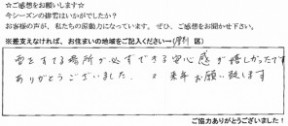 ☆ご感想をお願いします☆
今シーズンの除雪はいかがでしたか？
お客様の声が、私たちの原動力になっています。ぜひ、ご感想をお聞かせ下さい。
※差支えなければ、お住まいの地域をご記入ください→（厚別 区）
雪をすてる場所が必ずできる安心感が嬉しかったです
ありがとうございました。 来年お願い致します
ご協力ありがとうございました！